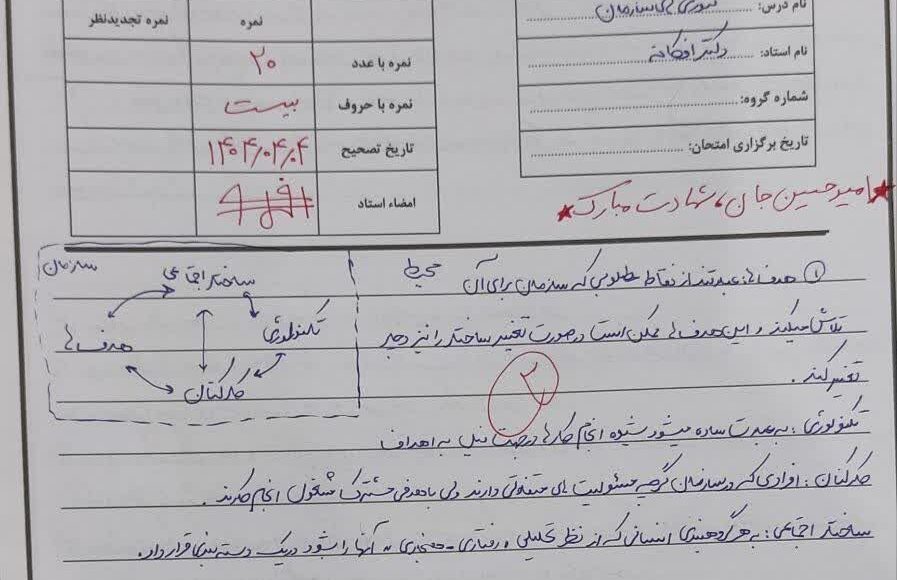 نام درس: تئوری های سازمان
نام استاد: دکتر
شماره گروه:
تاریخ برگزاری امتحان:
نمره نمره تجدیدنظر
نمره با عدد ۲۰
نمره با حروف بیست
تاریخ تصحیح ۱۴۰۴/۰۴/۰۴
امضاء استاد
امیرحسین جان، شهادت مبارک
سازمان
محیط
ساختار اجتماعی
تکنولوژی
هدف ها
کارکنان
① هدف ها: عبارتند از نقاط مطلوبی که سازمان برای آن
تلاش میکند و این هدف ها ممکن است در صورت تغییر ساختار را نیز دچار
تغییر کند.
۲
تکنولوژی: به عبارت ساده میشود شیوه انجام کارها در جهت نیل به اهداف
کارکنان: افرادی که در سازمان گرچه مسئولیت های متفاوتی دارند ولی با هدفی مشترک مشغول انجام کارند.
ساختار اجتماعی: به هر گروهبندی انسانی که از نظر تحلیلی، رفتاری - هنجاری - آنها را بشود در یک دسته بندی قرار داد.